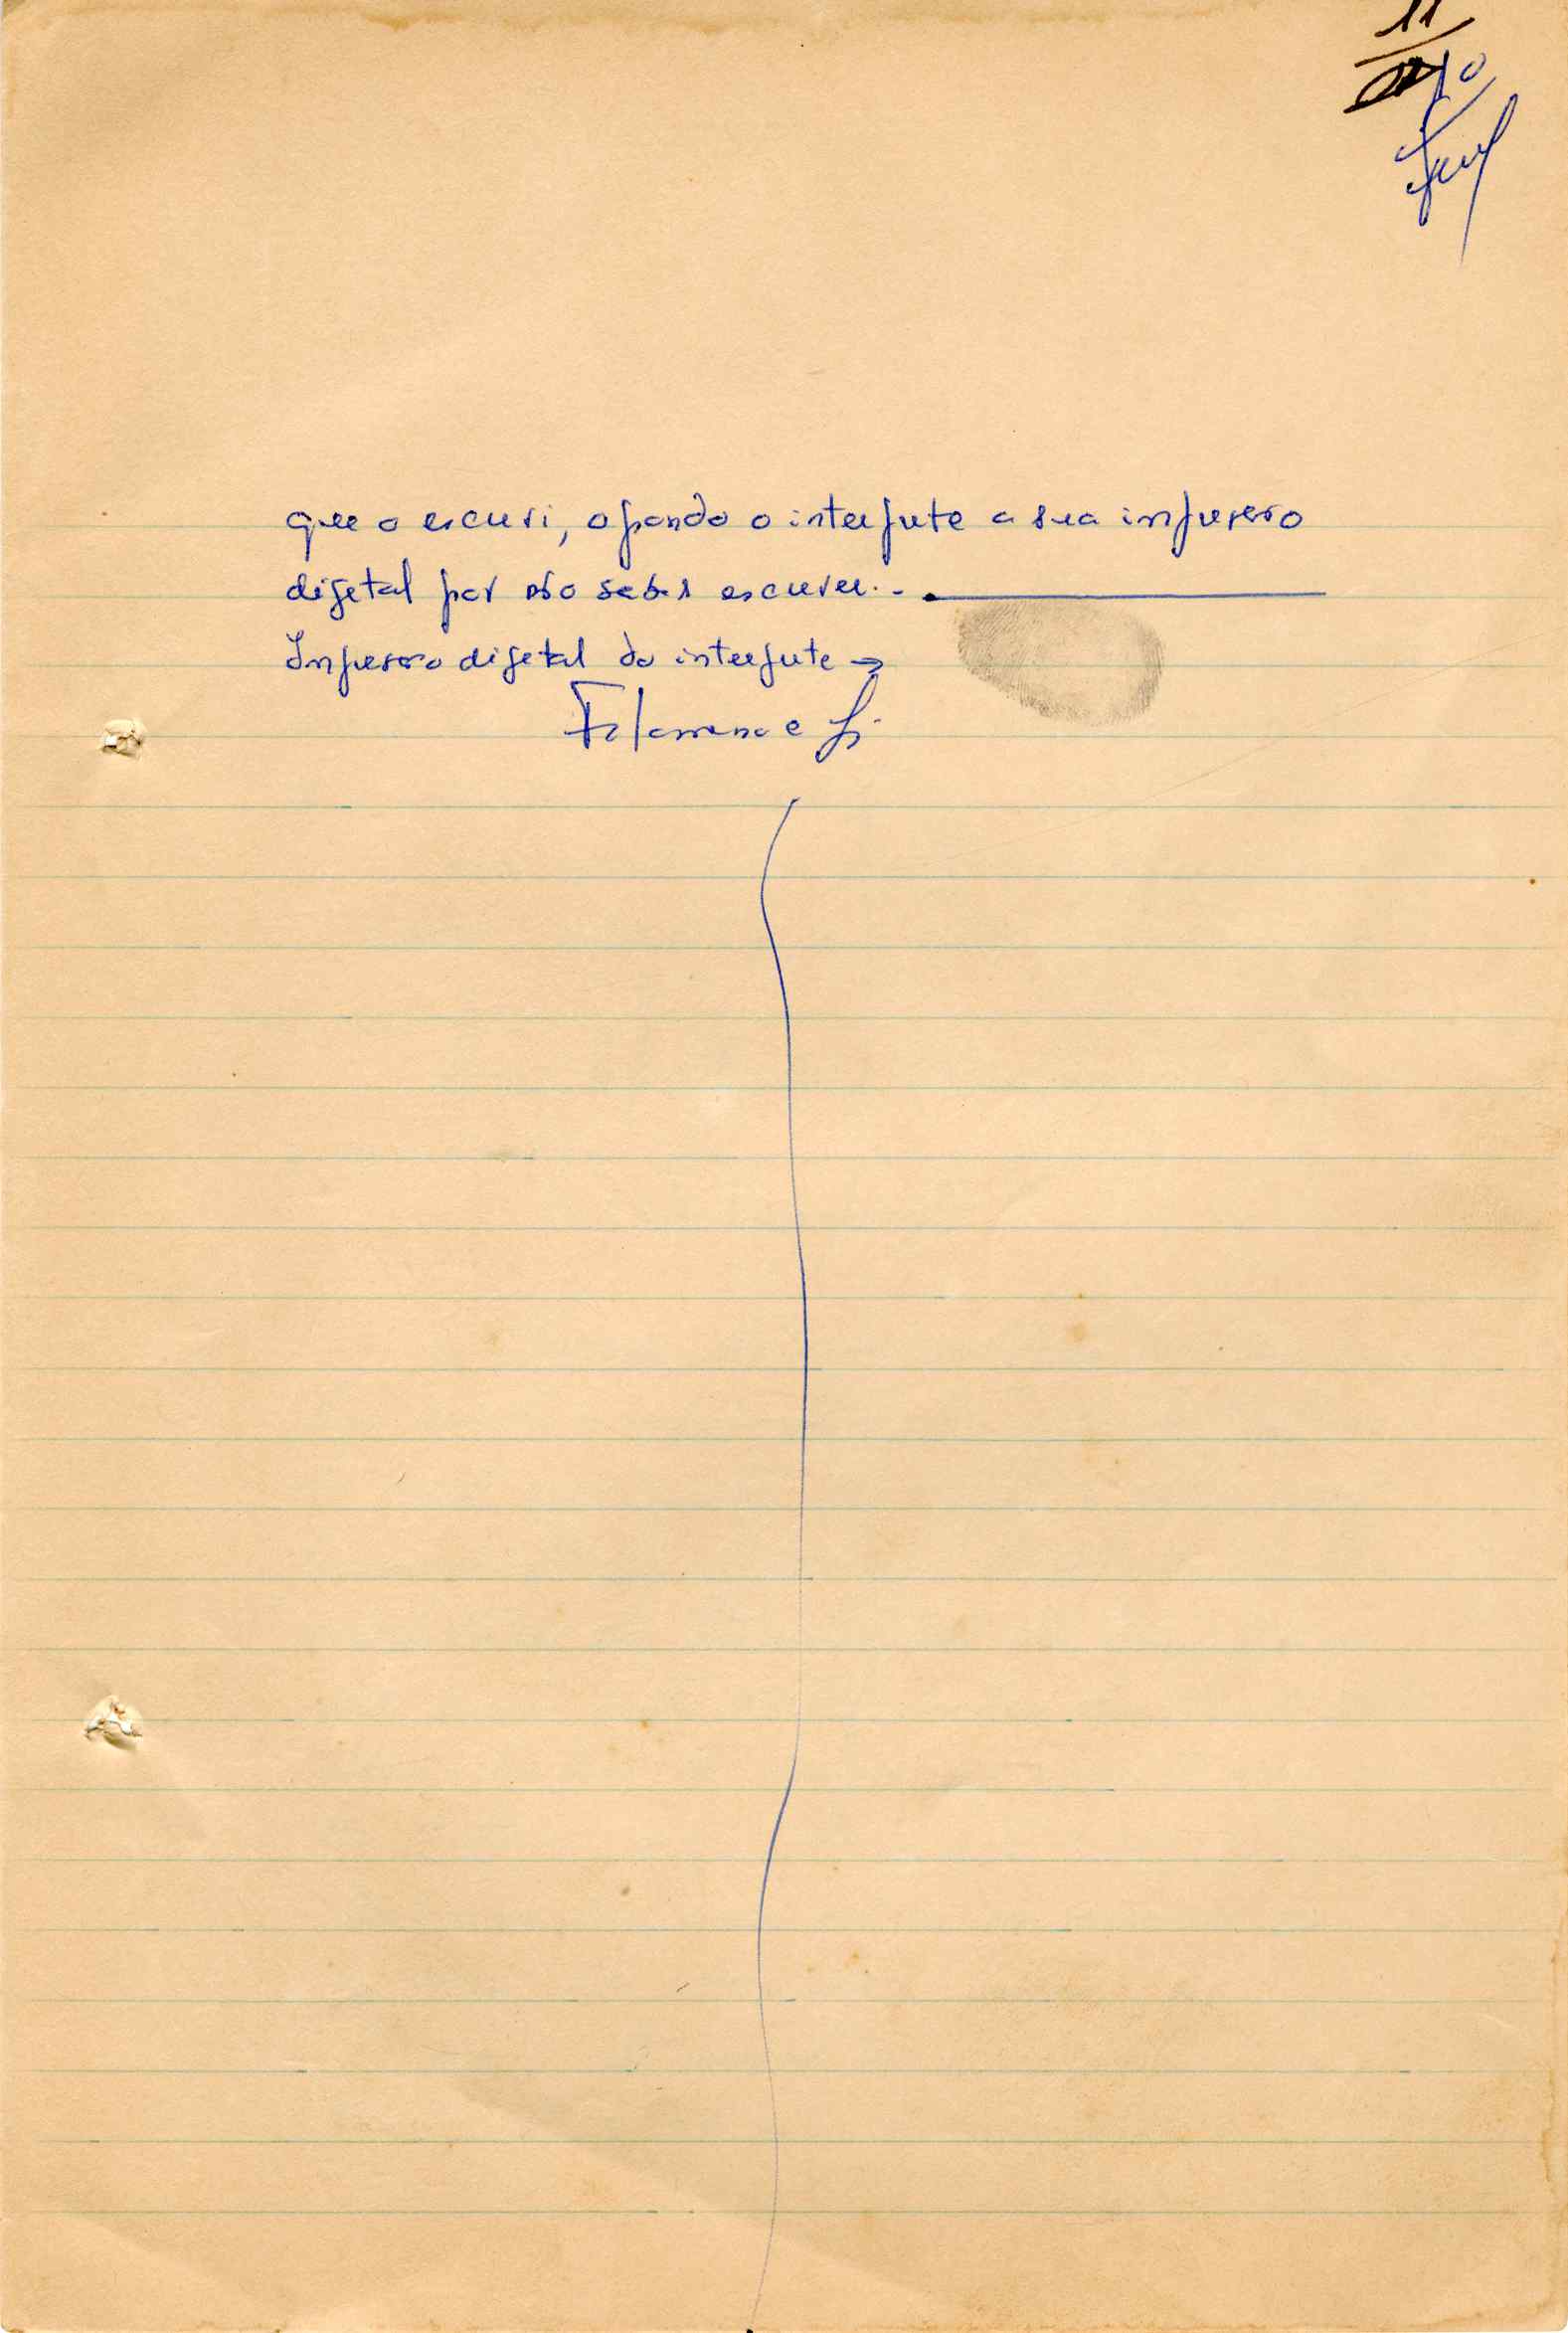 11
10
que o escrevi, apondo o interprete a sua impressão
digetal por não saber escrever. -
Impressão digetal do interprete →